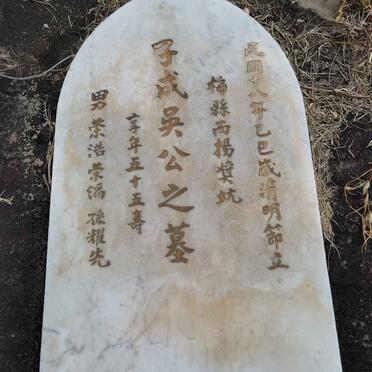 民國十八年己巳歲清明節立
梅縣丙楊槳坑
子成吳公之墓
享年五十五壽
男 榮浩 榮滔 孫耀先